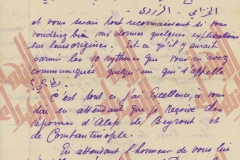 الخزامي - الزردى
et vous serais tout reconnaissant si vous
voudriez bien me donner quelques explications
sur leurs origines. Est-ce qu'il y aurait
parmi les 10 rythmes que vous m'avez
communiqués quelqu'un qui s'appelle

C'est tout ce j'ai Excellence, à vous
dire en attendant que je reçoive les
réponses d'Alep de Beyrout et
de Constantinople.
En attendant l'honneur de vous lire